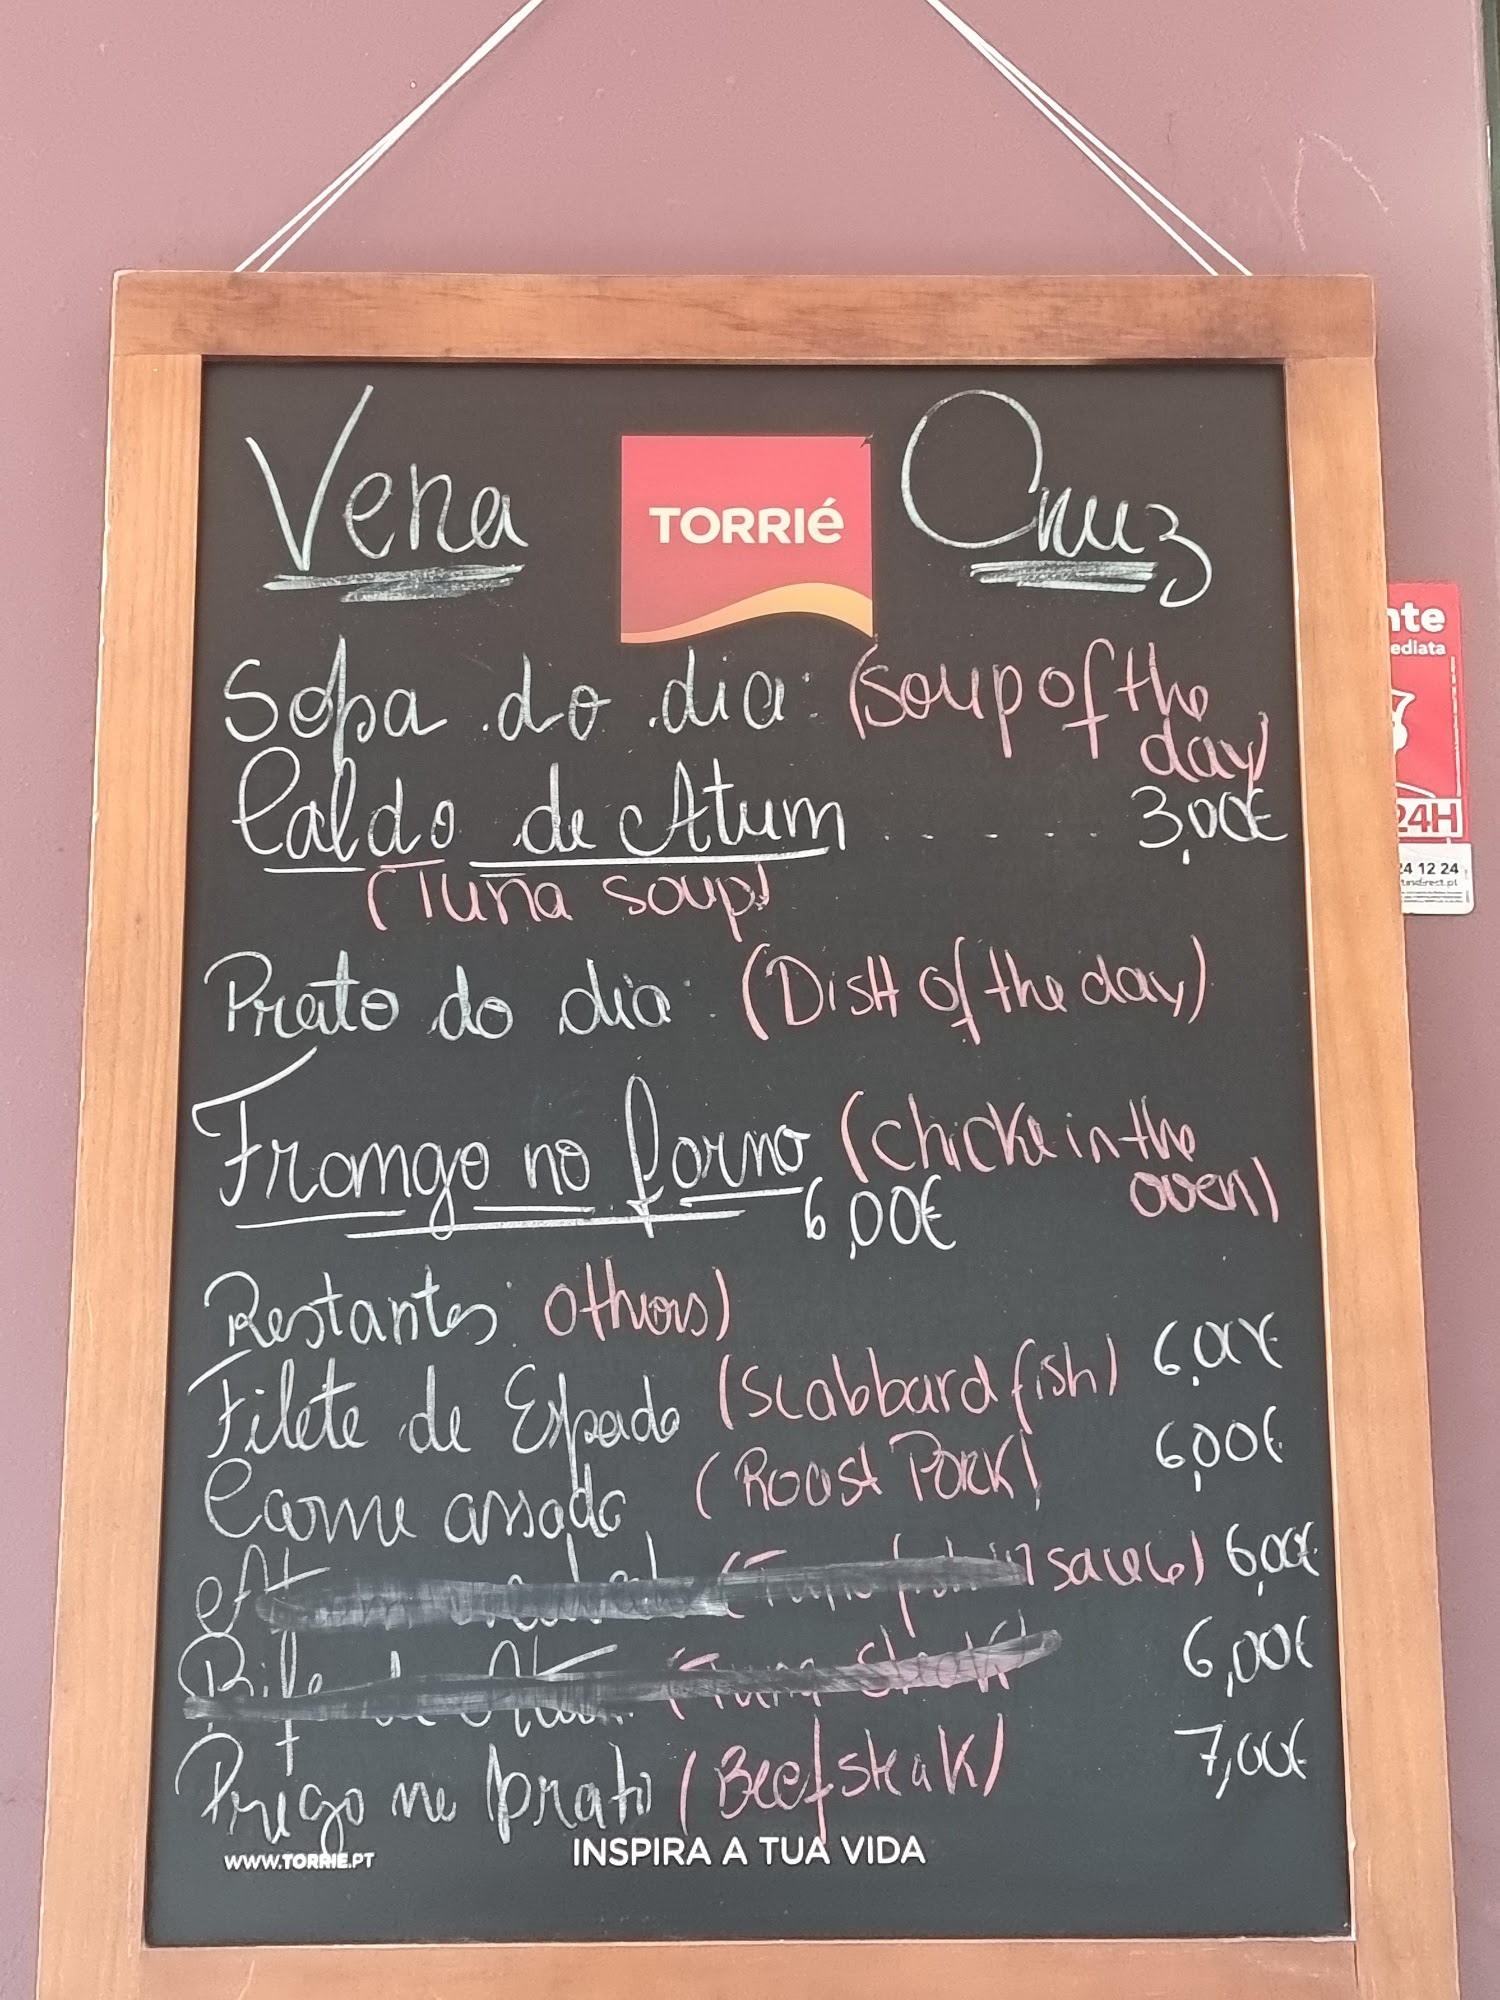 Vera TORRIÉ Cruz
Sopa do dia: (soup of the
day)
Caldo de Atum ........ 3,00€
(Tuna soup)
Prato do dia: (DisH of the day)
Frango no forno (chicke in the
oven)
6,00€
Restantes: others)
Filete de Espada (Scabbard fish) 6,00€
Carne assada (Roast Pork) 6,00€
sauce) 6,00€
Bife de Atum (Tuna Steak) 6,00€
Prego no prato (Beef steak) 7,00€
WWW.TORRIE.PT INSPIRA A TUA VIDA
24H
24 12 24